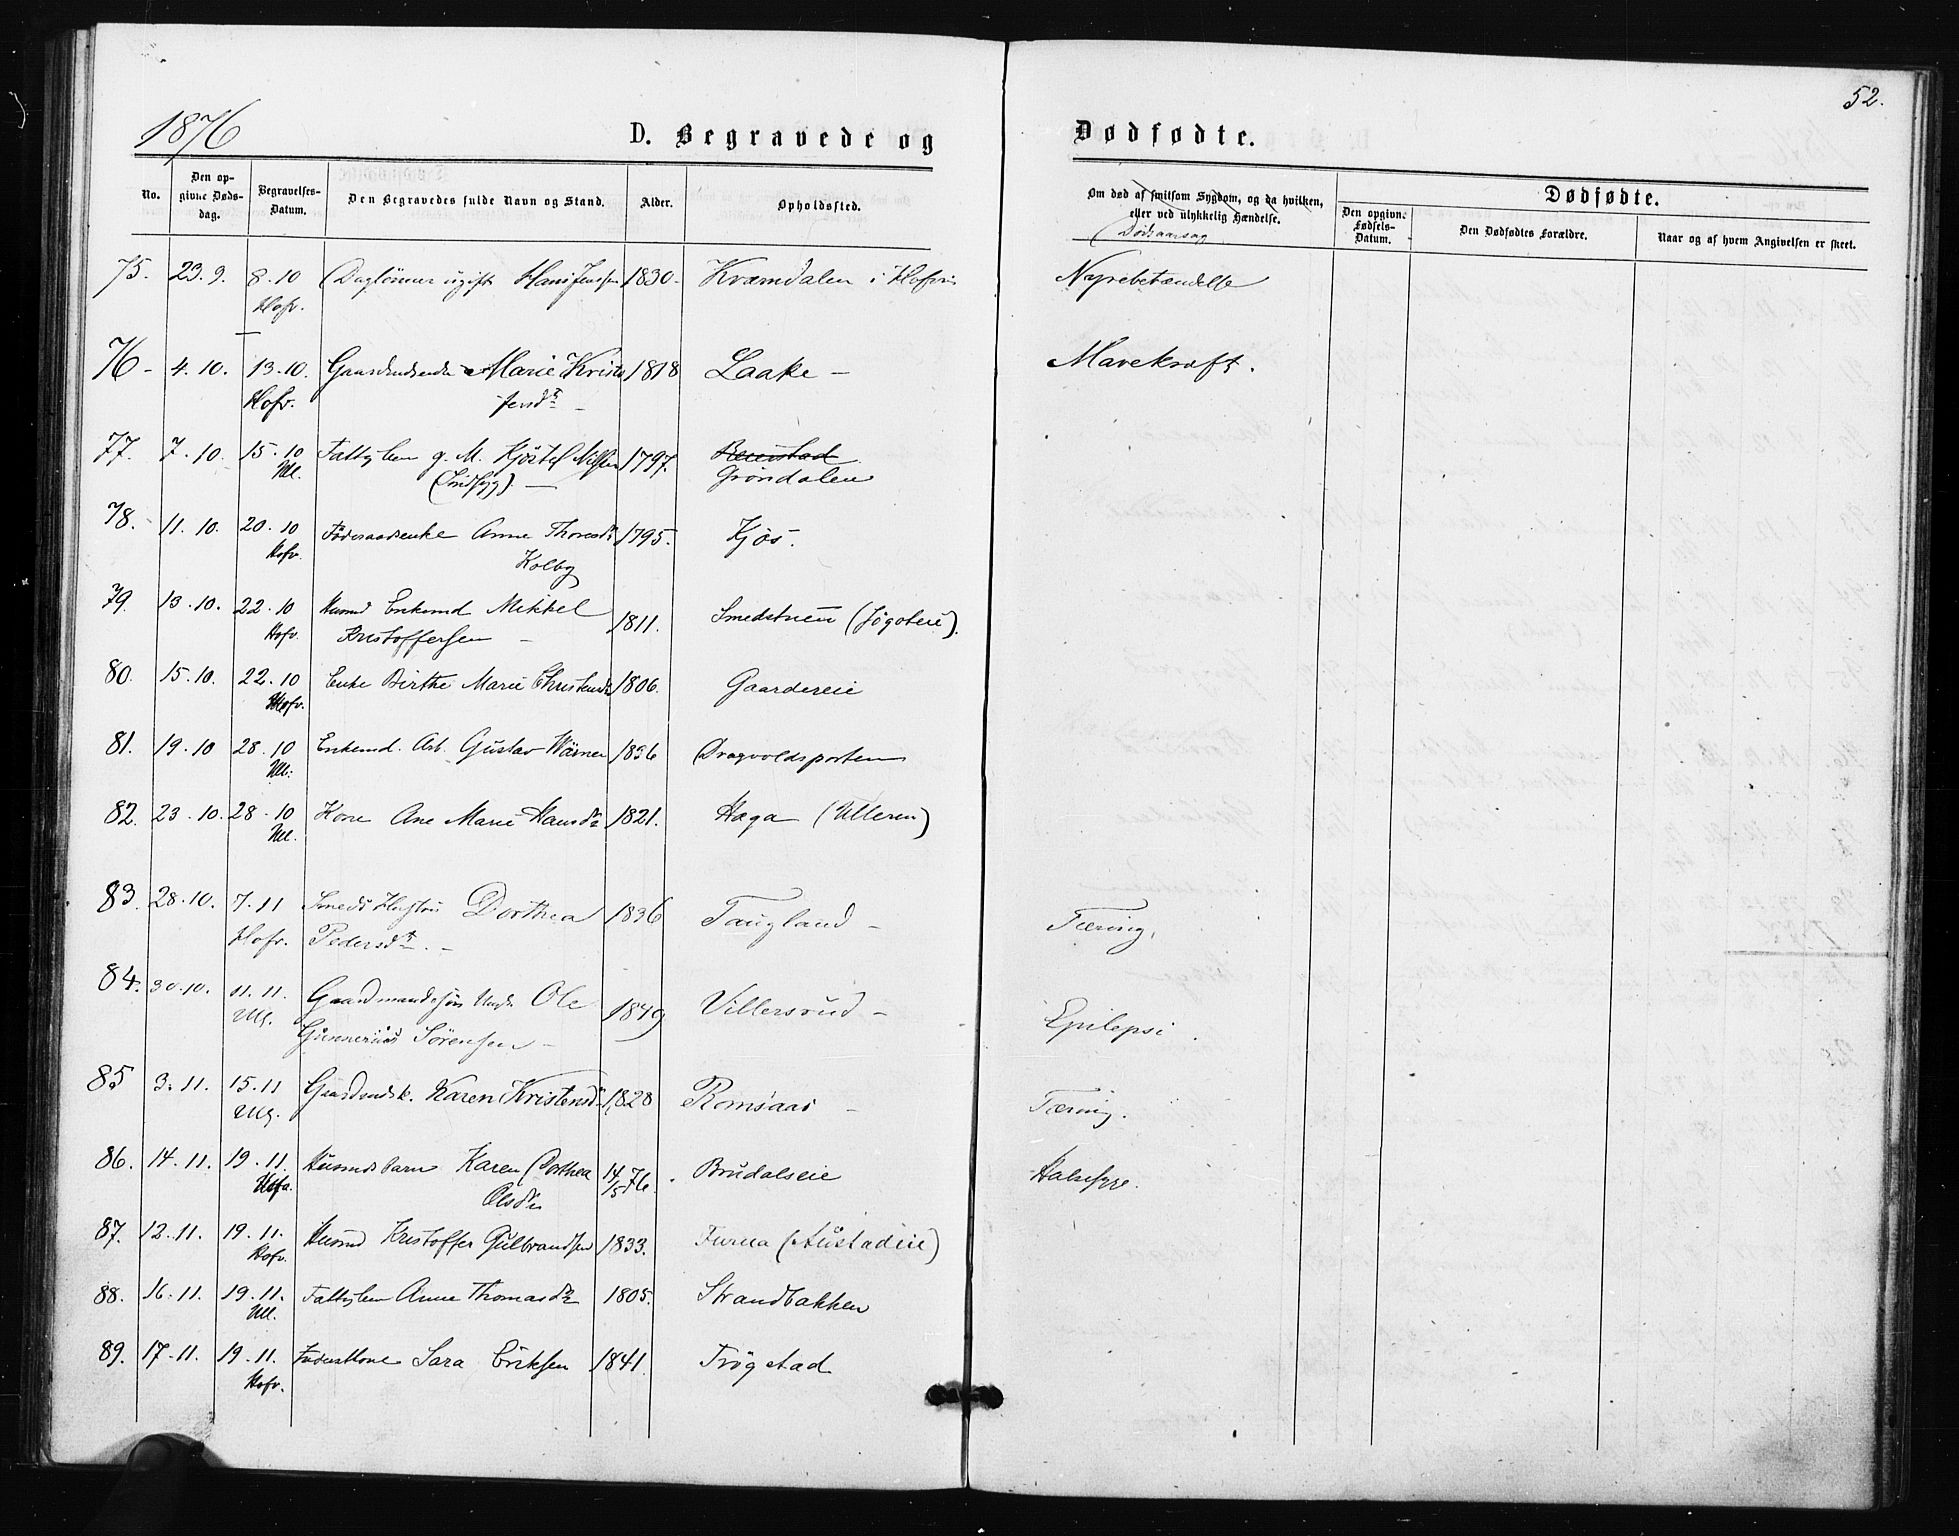 52.
1876
D. Begravede og Dødfødte.
No.
Den opgivne Dødsdag.
Begravelses-Datum.
Den Begravedes fulde Navn og Stand.
Alder.
Opholdssted.
Om død af smitsom Sygdom, og da hvilken,
eller ved ulykkelig Hændelse.
Dødsaarsag
Dødfødte.
Den opgivn. Fødsels-Datum.
Den Dødfødtes Forældre.
Naar og af hvem Angivelsen er skeet.
75. 23.9. 8.10 Daglønner ugift Hans Jenssen 1830. Kvamdalen i Hofvin Nyrebetændelse
Hofv.
76 - 4.10. 13.10. Marie Kristo 1818 Laake - Mavekræft.
Hofv. fersdt. -
77. 7.10. 15.10 Fattiglem g. M. Kjøstel Nilsen 1797. Grøndalen
Ull. (Sindsyg). -
78. 11.10. 20.10 Føderaadsenke Anne Thoresdt 1795. Kjøs.
Hofv. Kolby
79. 13.10. 22.10 Husmd Enkemd Mikkel 1811. Smedstuen (Jøgoteie).
Hofv. Kristoffersen -
80. 15.10. 22.10 Enke Birthe Marie Christensdt 1806. Gaardereie
Hofv.
81. 19.10 28.10 Enkemd. Arb. Gustav Wärner 1836 Dragvoldsporten
Ull.
82. 23.10. 28.10 Kone Ane Marie Hansdt 1821. Haga (Ulleren)
Ull.
83. 28.10. 7.11 Smeds Hustru Dorthea 1836 Taugland - Tæring.
Hofv. Pedersdt. -
84. 30.10. 11.11. Gaardmandssøn Ungk. Ole 1849 Villersrud - Epilepsi.
Ull. Gunnerius Sørensen -
85 3.11. 15.11 Gaardmdsk. Karen Kristensdt 1828 Romsaas - Tæring.
Ull.
86. 14.11. 19.11. Husmdsbarn Karen Dorthea 14/5 76. Brudalseie Halssyge.
Hofv. Olsdt
87. 12.11. 19.11. Husmd Kristoffer Gulbrandsen 1833. Furua (Austadeie)
Hofv.
88. 16.11. 19.11. Fattiglem Anne Thomasdt 1805. Strandbakken
Ull.
89. 17.11. 19.11. Sara Eriksen 1841. Trøgstad
Hofv.